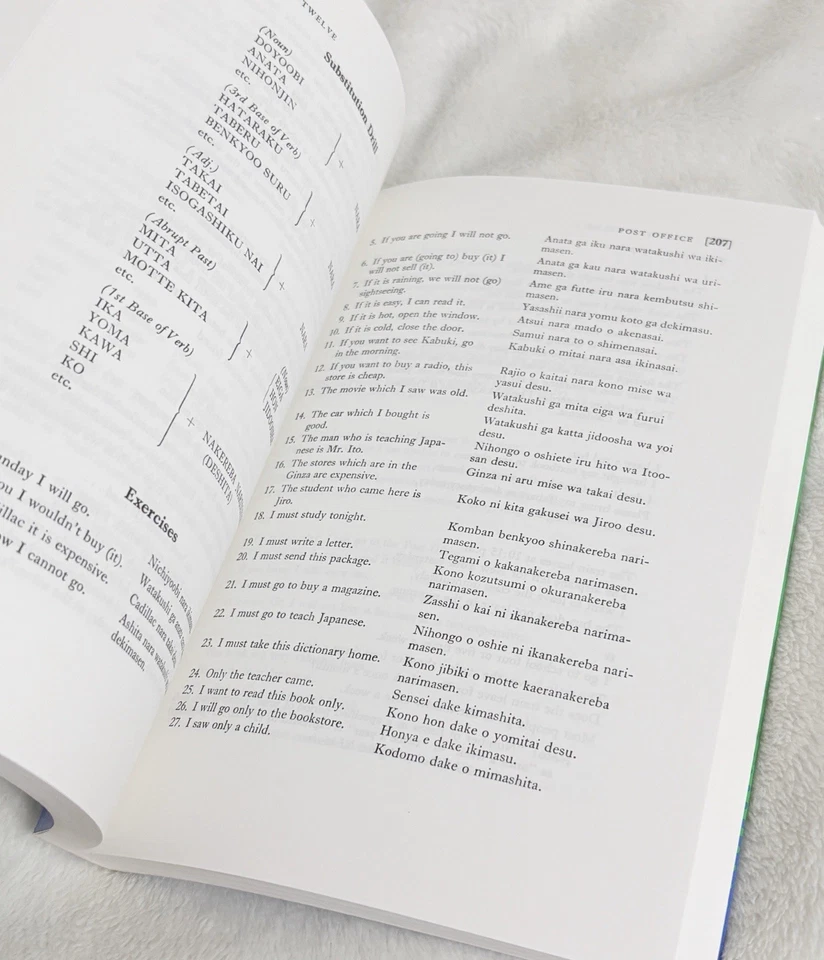 TWELVE
Substitution Drill
(Noun)
DOYOOBI
ANATA
NIHONJIN
etc.
(3rd Base of Verb)
HATARAKU
TABERU
BENKYOO SURU
etc.
} +
(Adj.)
TAKAI
TABETAI
ISOGASHIKU NAI
etc.
} +
(Abrupt Past)
MITA
UTTA
MOTTE KITA
etc.
} +
(1st Base of Verb)
IKA
YOMA
KAWA
SHI
KO
etc.
} + NAKEREBA
(DESHITA)
Exercises
I will go.
I wouldn't buy (it).
it is expensive.
I cannot go.
Nichiyoobi nara
Watakushi ga
Cadillac nara
Ashita nara
dekimasen.
POST OFFICE [207]
5. If you are going I will not go.
Anata ga iku nara watakushi wa iki-
masen.
6. If you are (going to) buy (it) I
will not sell (it).
Anata ga kau nara watakushi wa uri-
masen.
7. If it is raining, we will not (go)
sightseeing.
Ame ga futte iru nara kembutsu shi-
masen.
8. If it is easy, I can read it.
Yasashii nara yomu koto ga dekimasu.
9. If it is hot, open the window.
Atsui nara mado o akenasai.
10. If it is cold, close the door.
Samui nara to o shimenasai.
11. If you want to see Kabuki, go
in the morning.
Kabuki o mitai nara asa ikinasai.
12. If you want to buy a radio, this
store is cheap.
Rajio o kaitai nara kono mise wa
yasui desu.
13. The movie which I saw was old.
Watakushi ga mita eiga wa furui
deshita.
14. The car which I bought is
good.
Watakushi ga katta jidoosha wa yoi
desu.
15. The man who is teaching Japa-
nese is Mr. Ito.
Nihongo o oshiete iru hito wa Itoo-
san desu.
16. The stores which are in the
Ginza are expensive.
Ginza ni aru mise wa takai desu.
17. The student who came here is
Jiro.
Koko ni kita gakusei wa Jiroo desu.
18. I must study tonight.
Komban benkyoo shinakereba nari-
masen.
19. I must write a letter.
Tegami o kakanakereba narimasen.
20. I must send this package.
Kono kozutsumi o okuranakereba
narimasen.
21. I must go to buy a magazine.
Zasshi o kai ni ikanakereba narima-
sen.
22. I must go to teach Japanese.
Nihongo o oshie ni ikanakereba nari-
masen.
23. I must take this dictionary home.
Kono jibiki o motte kaeranakereba
narimasen.
24. Only the teacher came.
Sensei dake kimashita.
25. I want to read this book only.
Kono hon dake o yomitai desu.
26. I will go only to the bookstore.
Honya e dake ikimasu.
27. I saw only a child.
Kodomo dake o mimashita.